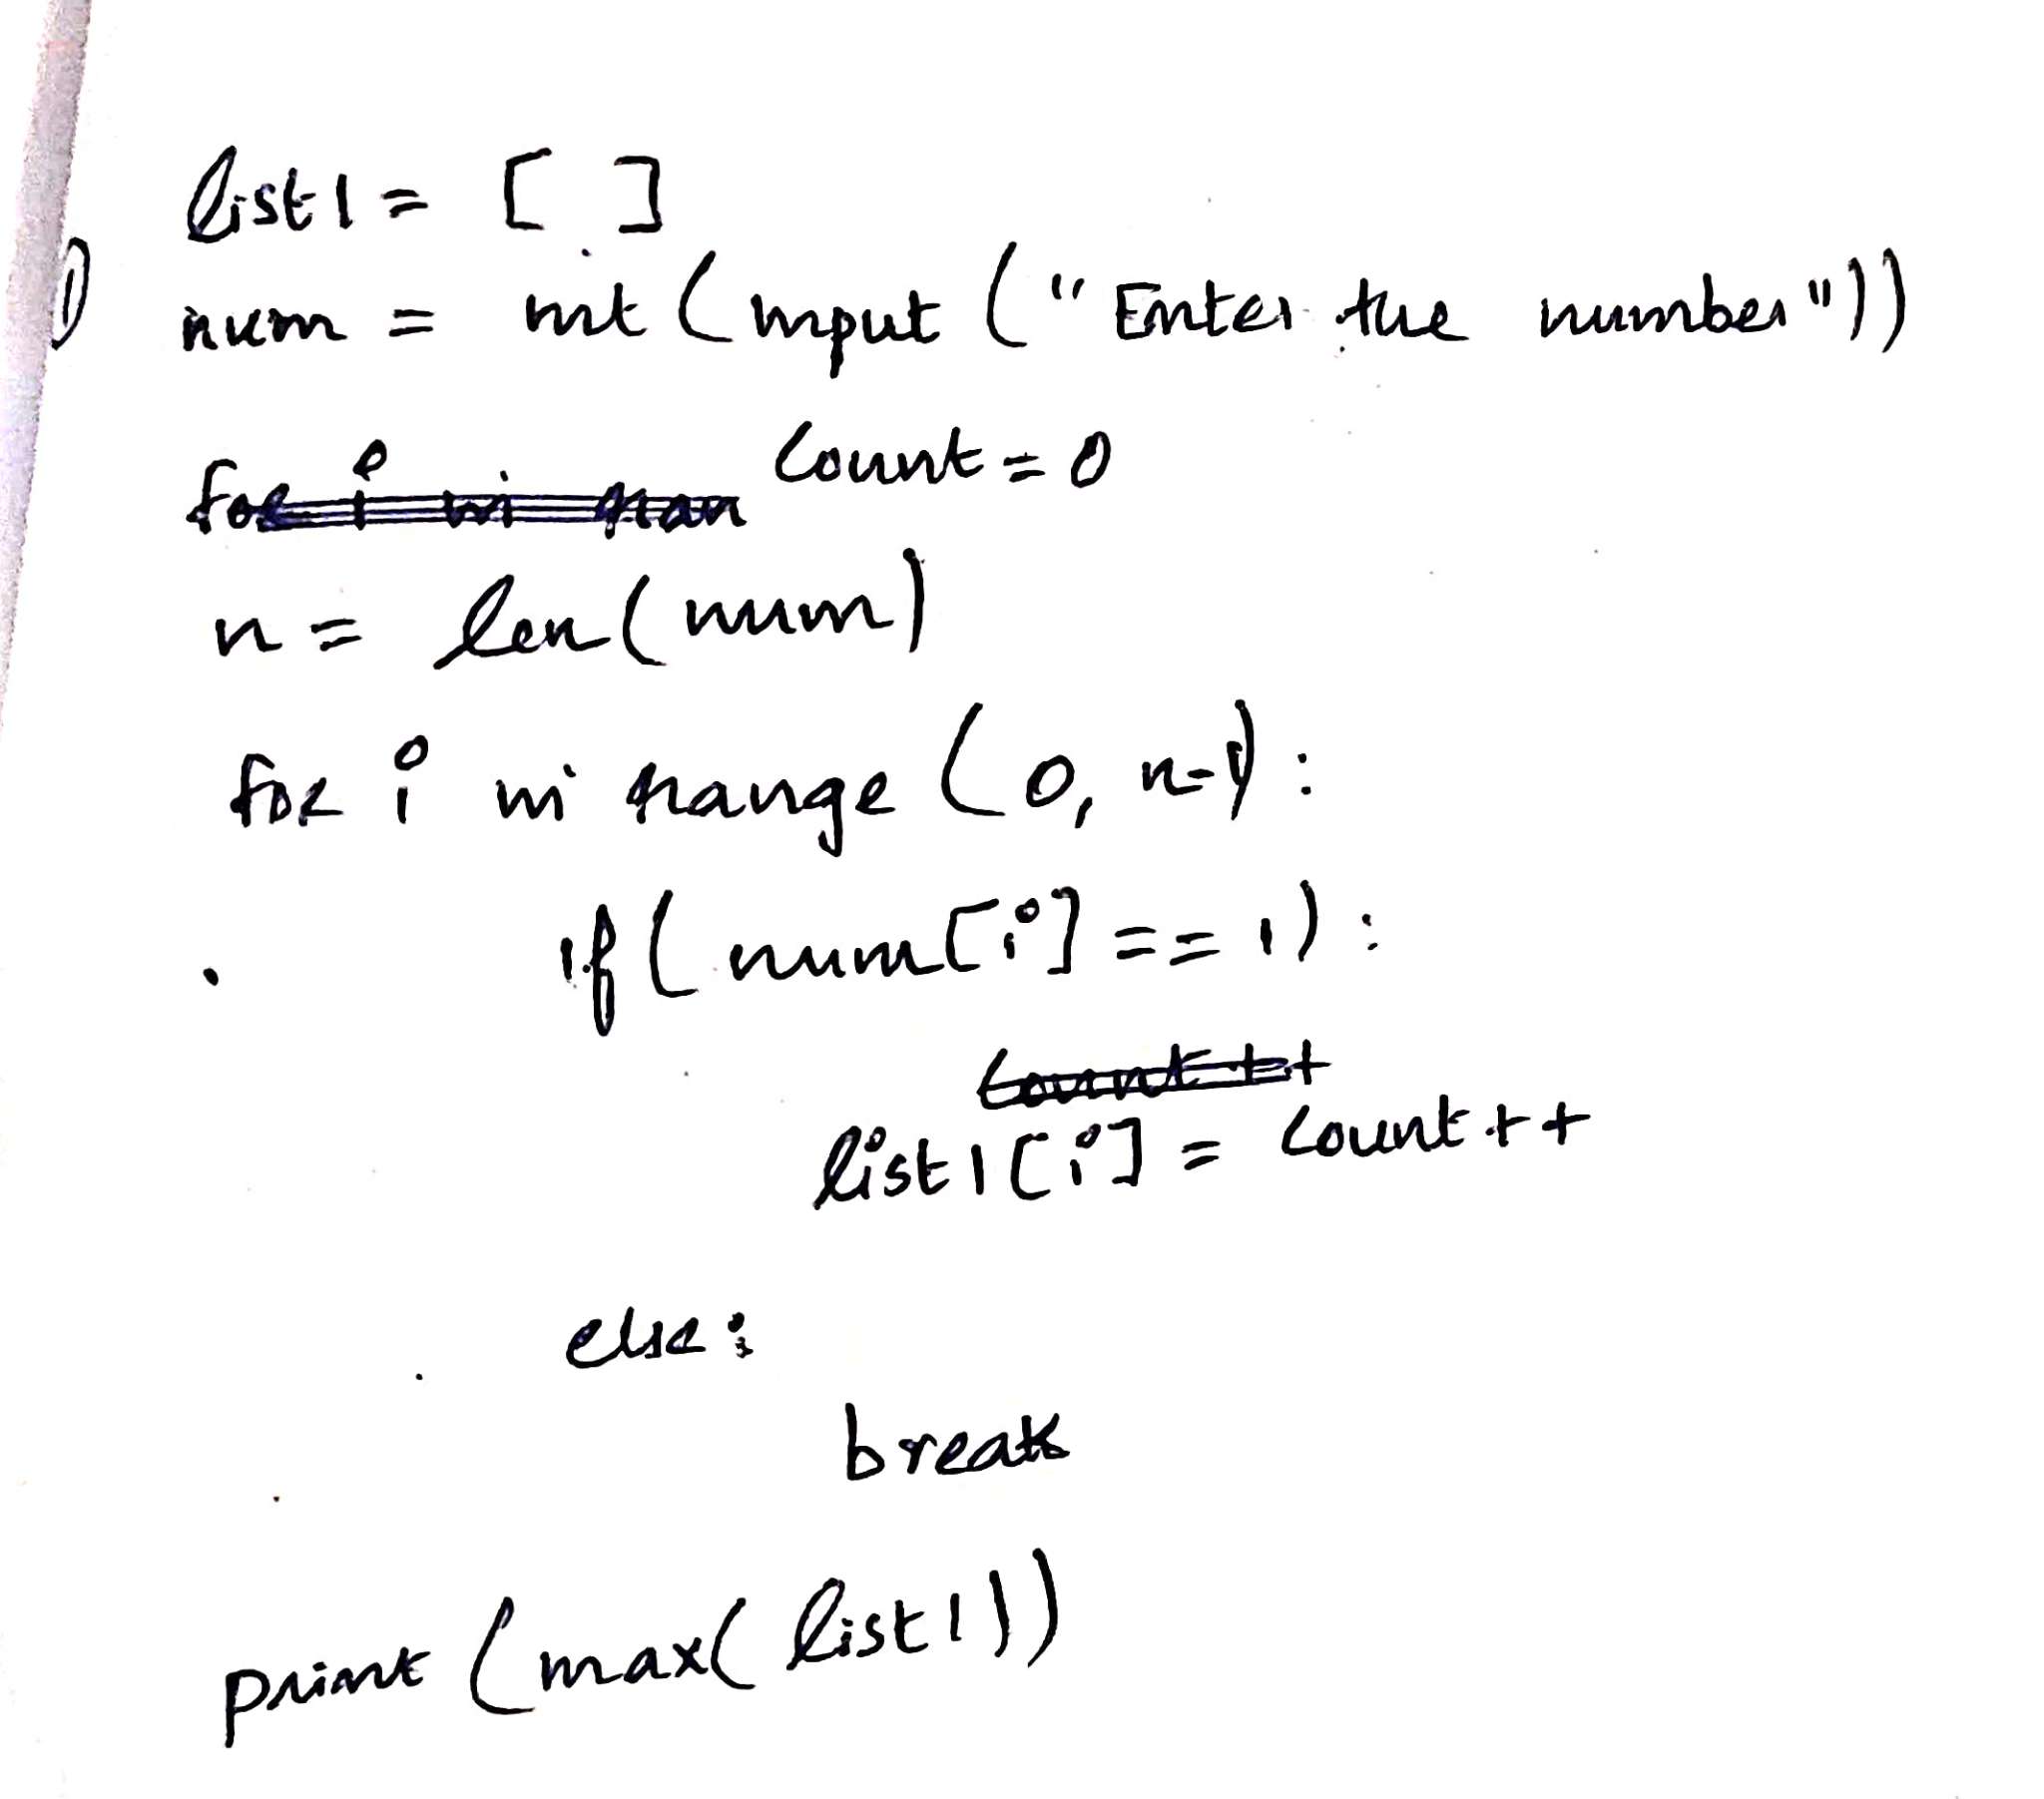 list1 = [ ]
num = int (input ("Enter the number"))
count = 0
n = len(num)
for i in range (0, n-1):
if (num[i] == 1):
list1[i] = count++
else:
break
print (max(list1))